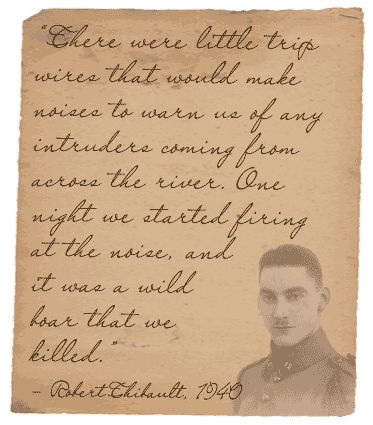 "There were little trip
wires that would make
noises to warn us of any
intruders coming from
across the river. One
night we started firing
at the noise, and
it was a wild
boar that we
killed."
- Robert Thibault, 1940